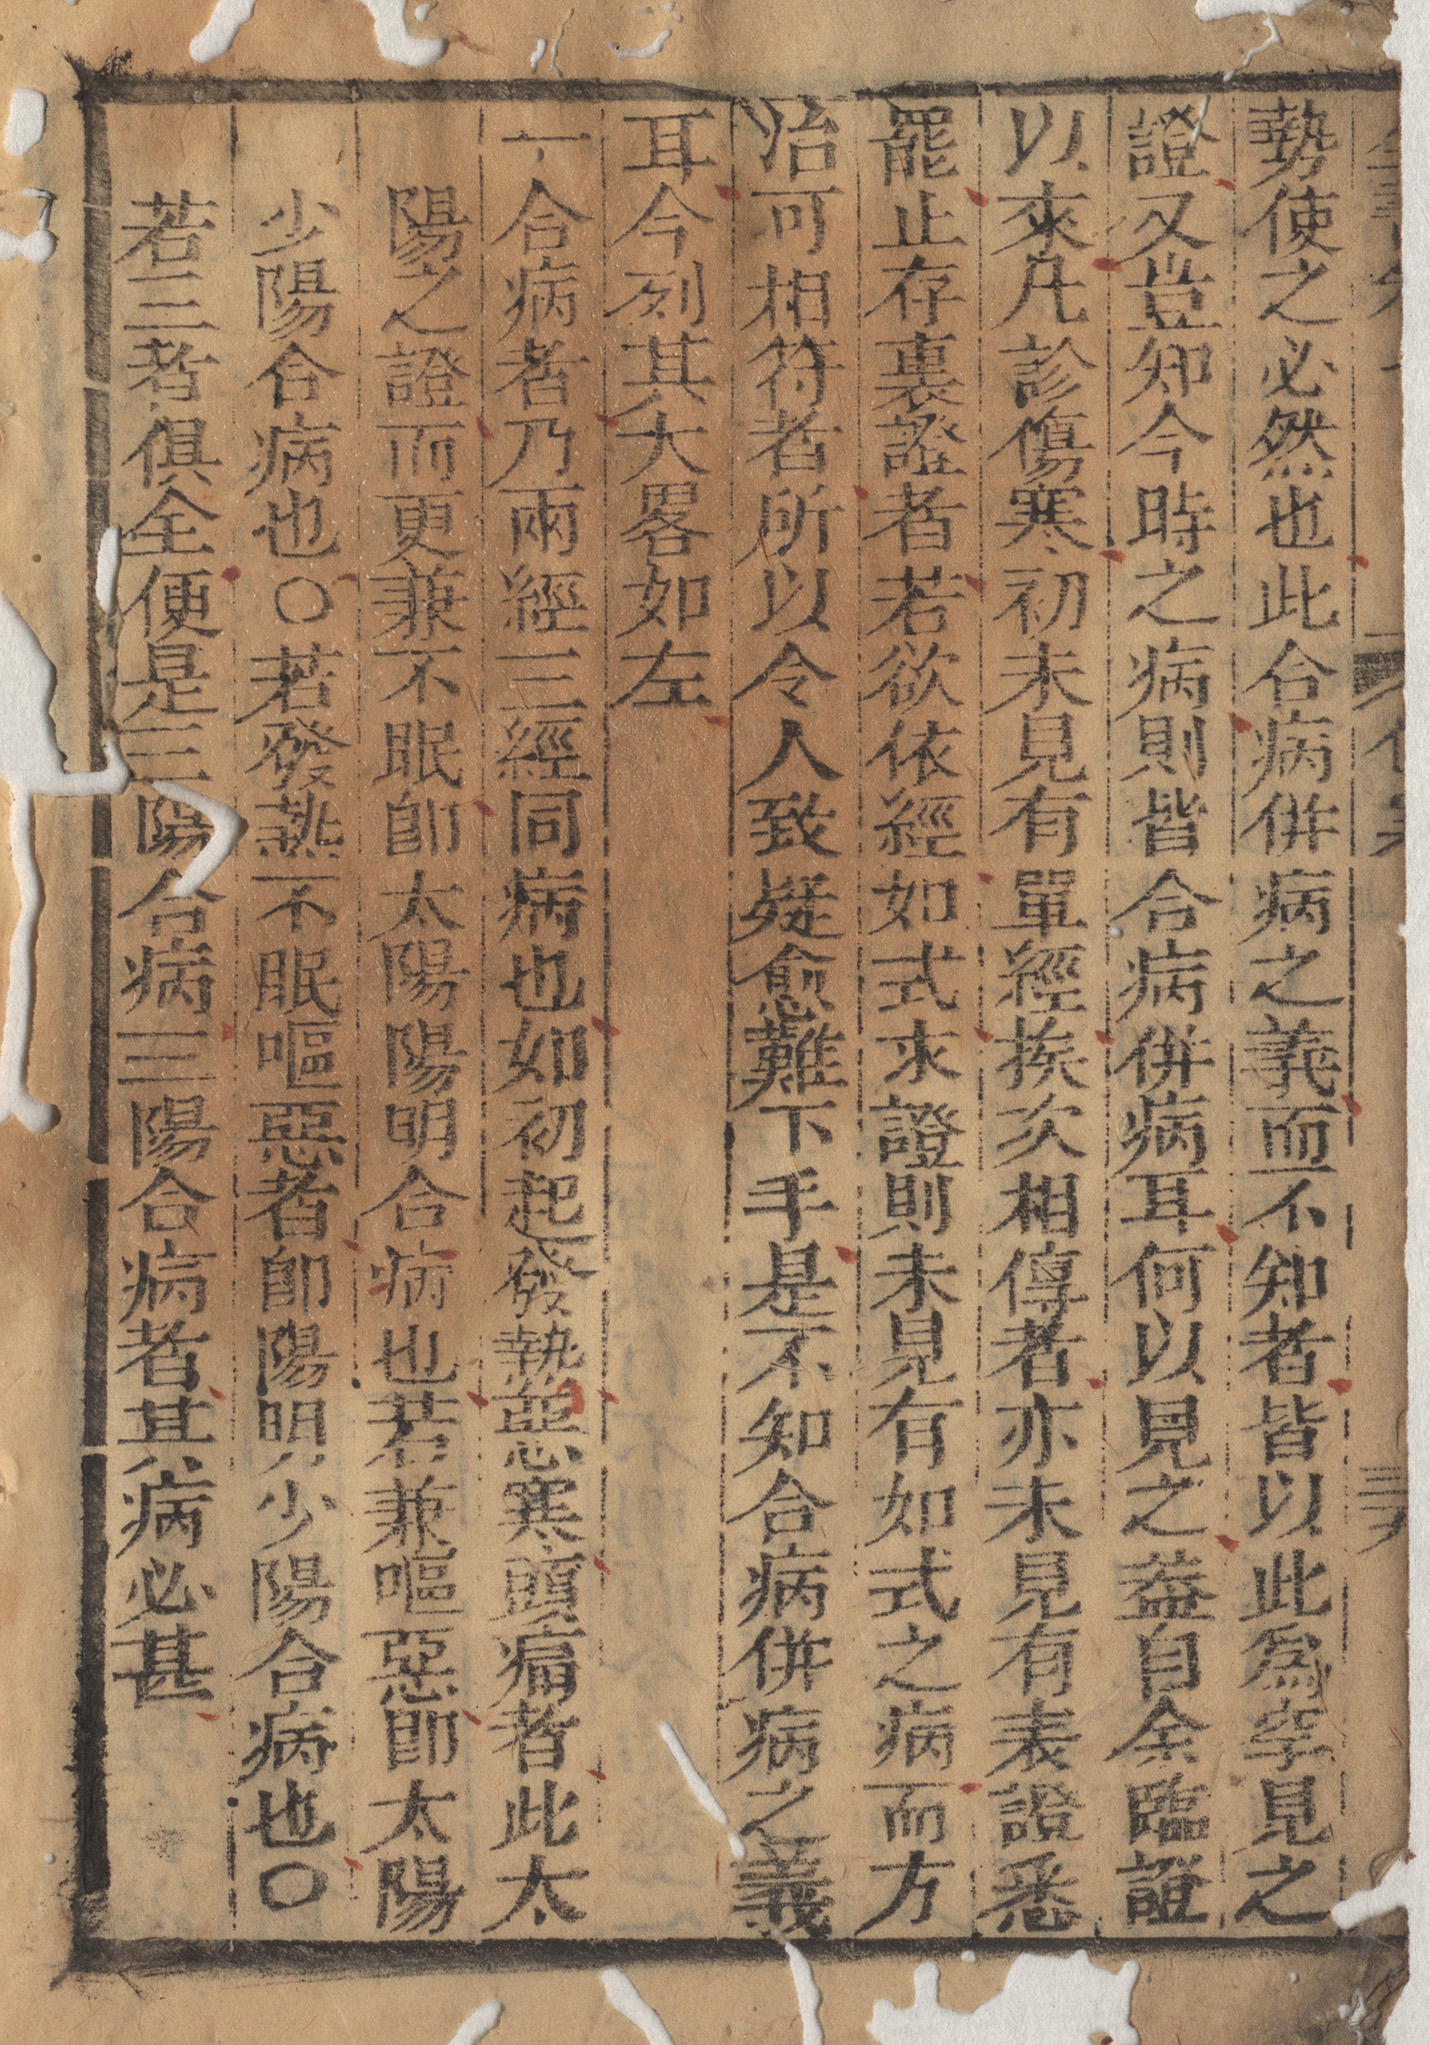 勢使之必然也此合病併病之義而不知者皆以此為罕見之
證又豈知今時之病則皆合病併病耳何以見之葢自余臨證
以來凡診傷寒初未見有單經挨次相傳者亦未見有表證悉
罷止存裏證者若欲依經如式求證則未見有如式之病而方
治可相符者所以令人致疑愈難下手是不知合病併病之義
耳今列其大畧如左
一合病者乃兩經三經同病也如初起發熱惡寒頭痛者此太
陽之證而更兼不眠卽太陽陽明合病也若兼嘔惡卽太陽
少陽合病也○若發熱不眠嘔惡者卽陽明少陽合病也○
若三者俱全便是三陽合病三陽合病者其病必甚